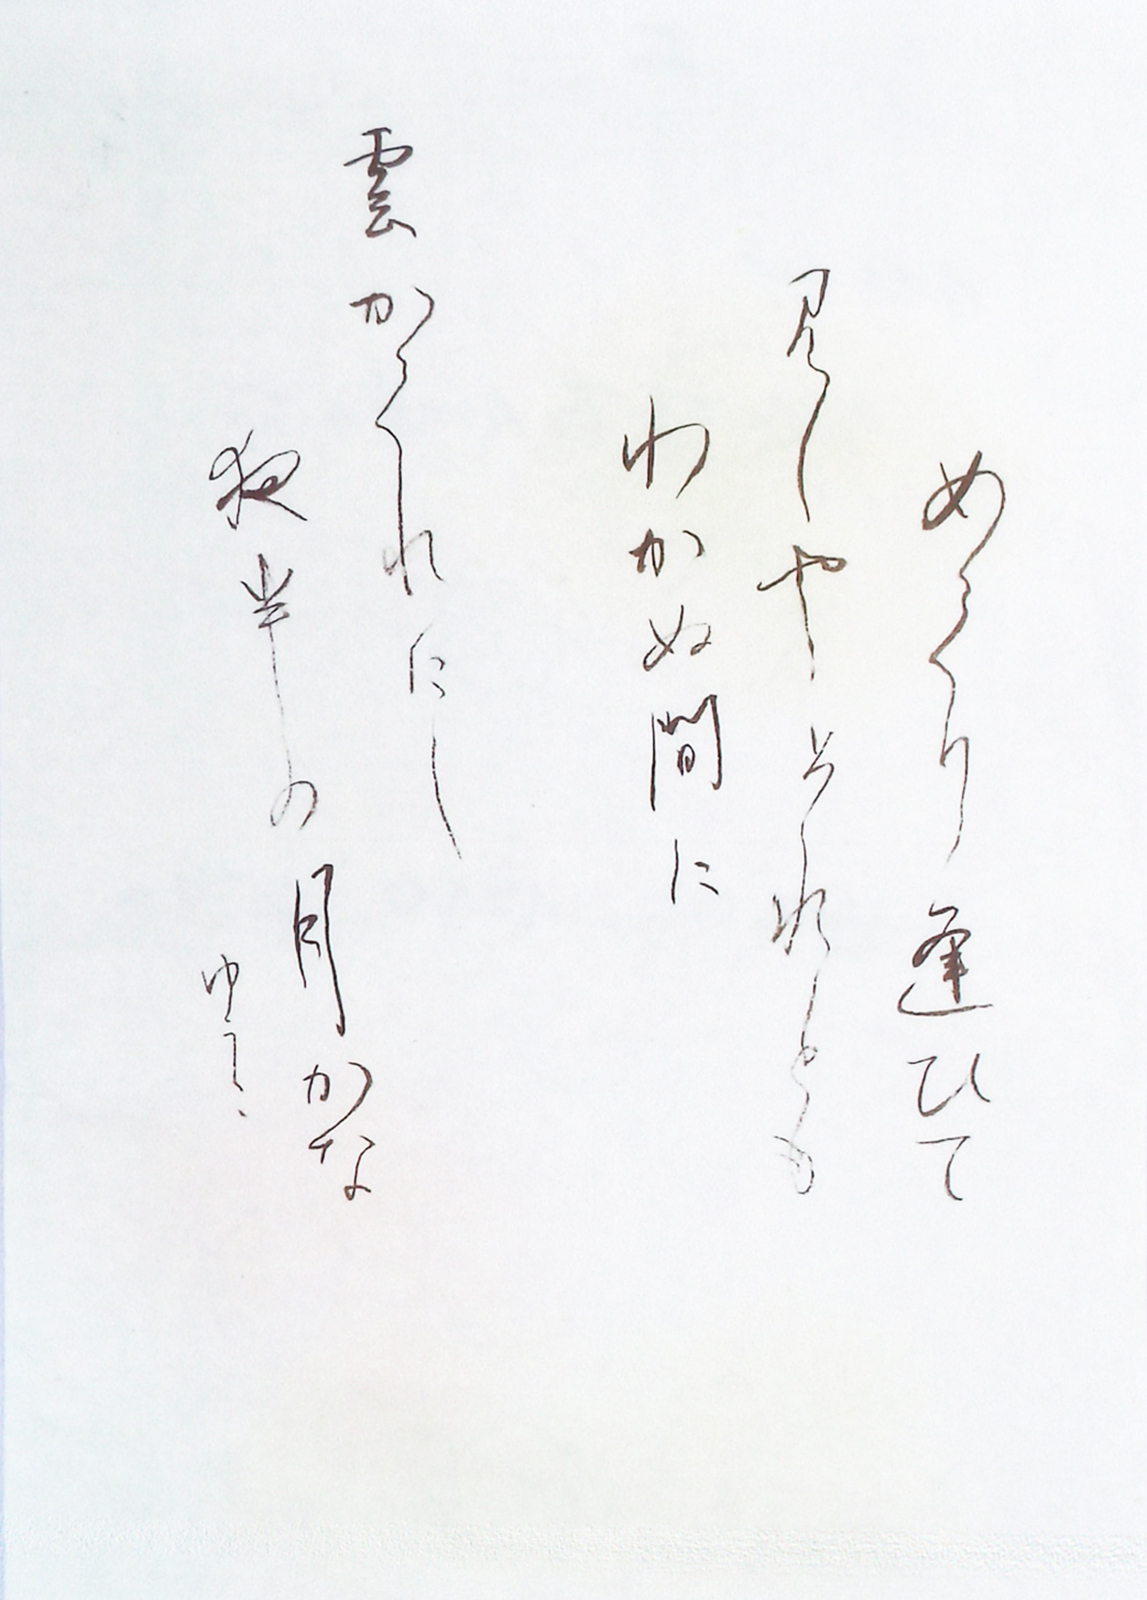 めくり逢ひて
見しやそれとも
わかぬ間に
雲かくれにし
夜半の月かな